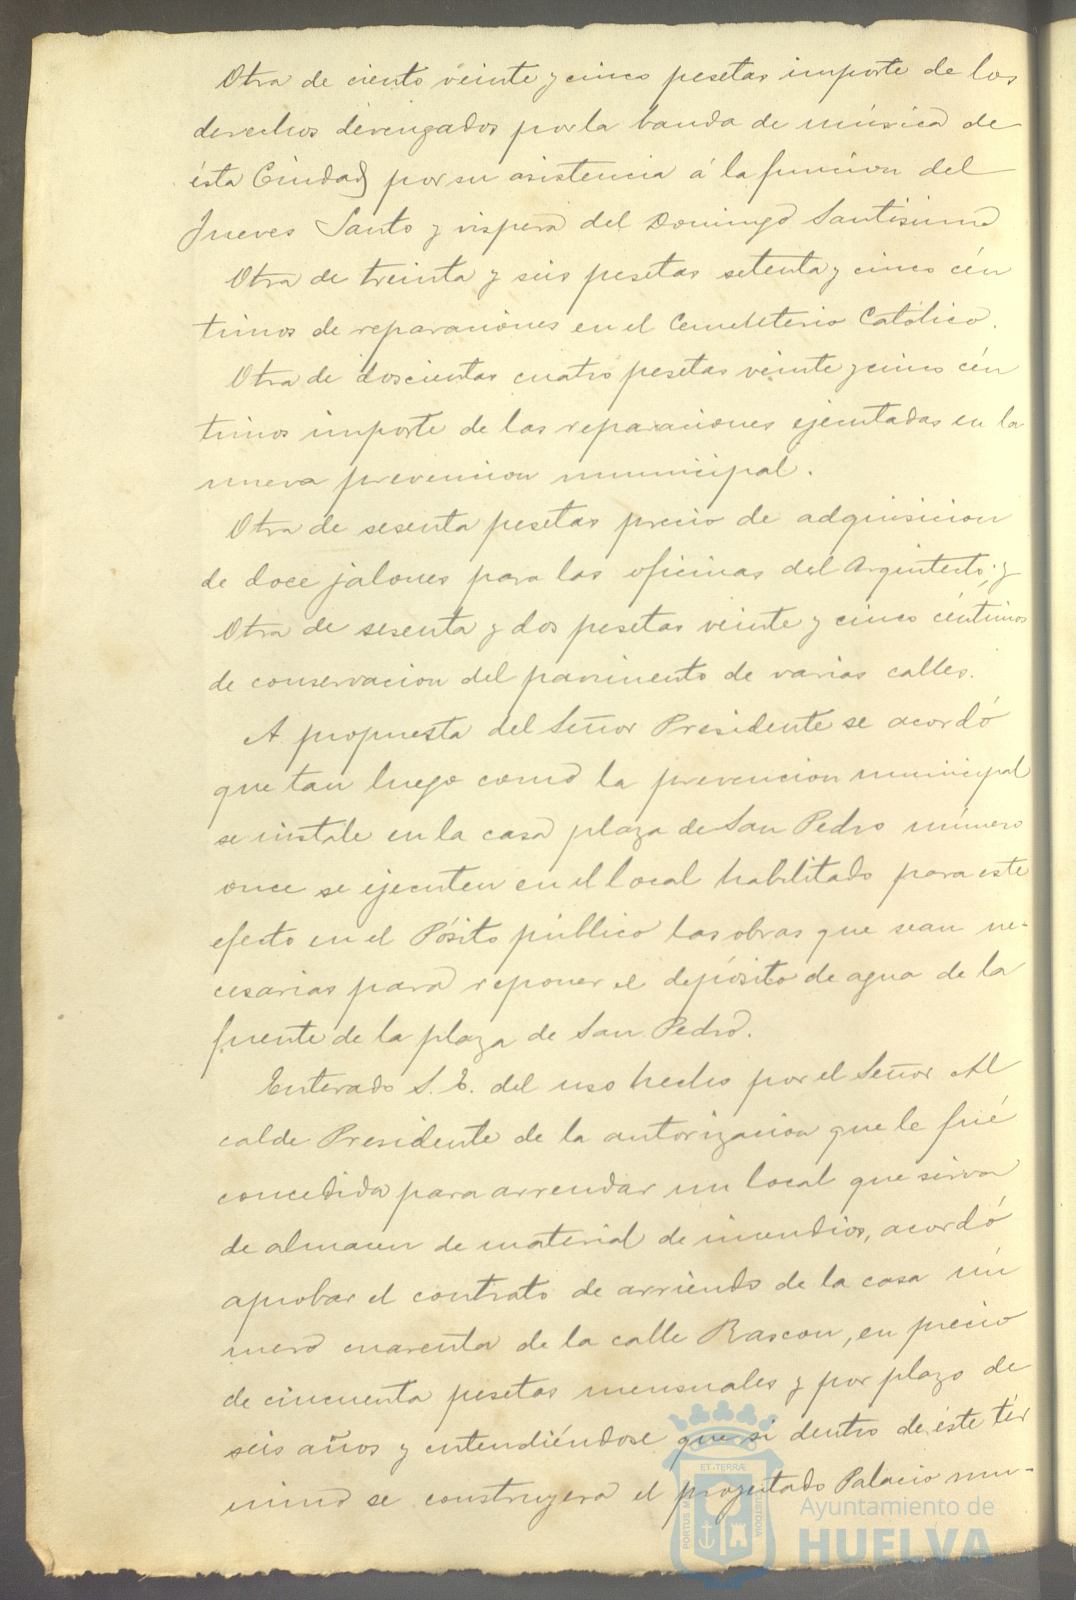 Otra de ciento veinte y cinco pesetas importe de los
derechos devengados por la banda de música de
ésta Ciudad por su asistencia á la funcion del
Jueves Santo y vispera del Domingo Santisimo
Otra de treinta y seis pesetas setenta y cinco cén
timos de reparaciones en el Cementerio Católico.
Otra de doscientas cuatro pesetas veinte y cinco cén
timos importe de las reparaciones ejecutadas en la
nueva prevencion municipal.
Otra de sesenta pesetas precio de adquisicion
de doce jalones para las oficinas del Arquitecto; y
Otra de sesenta y dos pesetas veinte y cinco céntimos
de conservacion del pavimento de varias calles.
A propuesta del Señor Presidente se acordó
que tan luego como la prevencion municipal
se instale en la casa plaza de San Pedro número
once se ejecuten en el local habilitado para este
efecto en el Pósito público las obras que sean ne-
cesarias para reponer el depósito de agua de la
fuente de la plaza de San Pedro.
Enterado S. E. del uso hecho por el Señor Al
calde Presidente de la autorizacion que le fué
concedida para arrendar un local que sirva
de almacen de material de incendios, acordó
aprobar el contrato de arriendo de la casa nú
mero cuarenta de la calle Rascon, en precio
de cincuenta pesetas mensuales y por plazo de
seis años y entendiéndose que si dentro de éste tér
mino se construyera el proyectado Palacio mu-
ET TERRÆ
PORTUS M
CUSTODIA
Ayuntamiento de
HUELVA